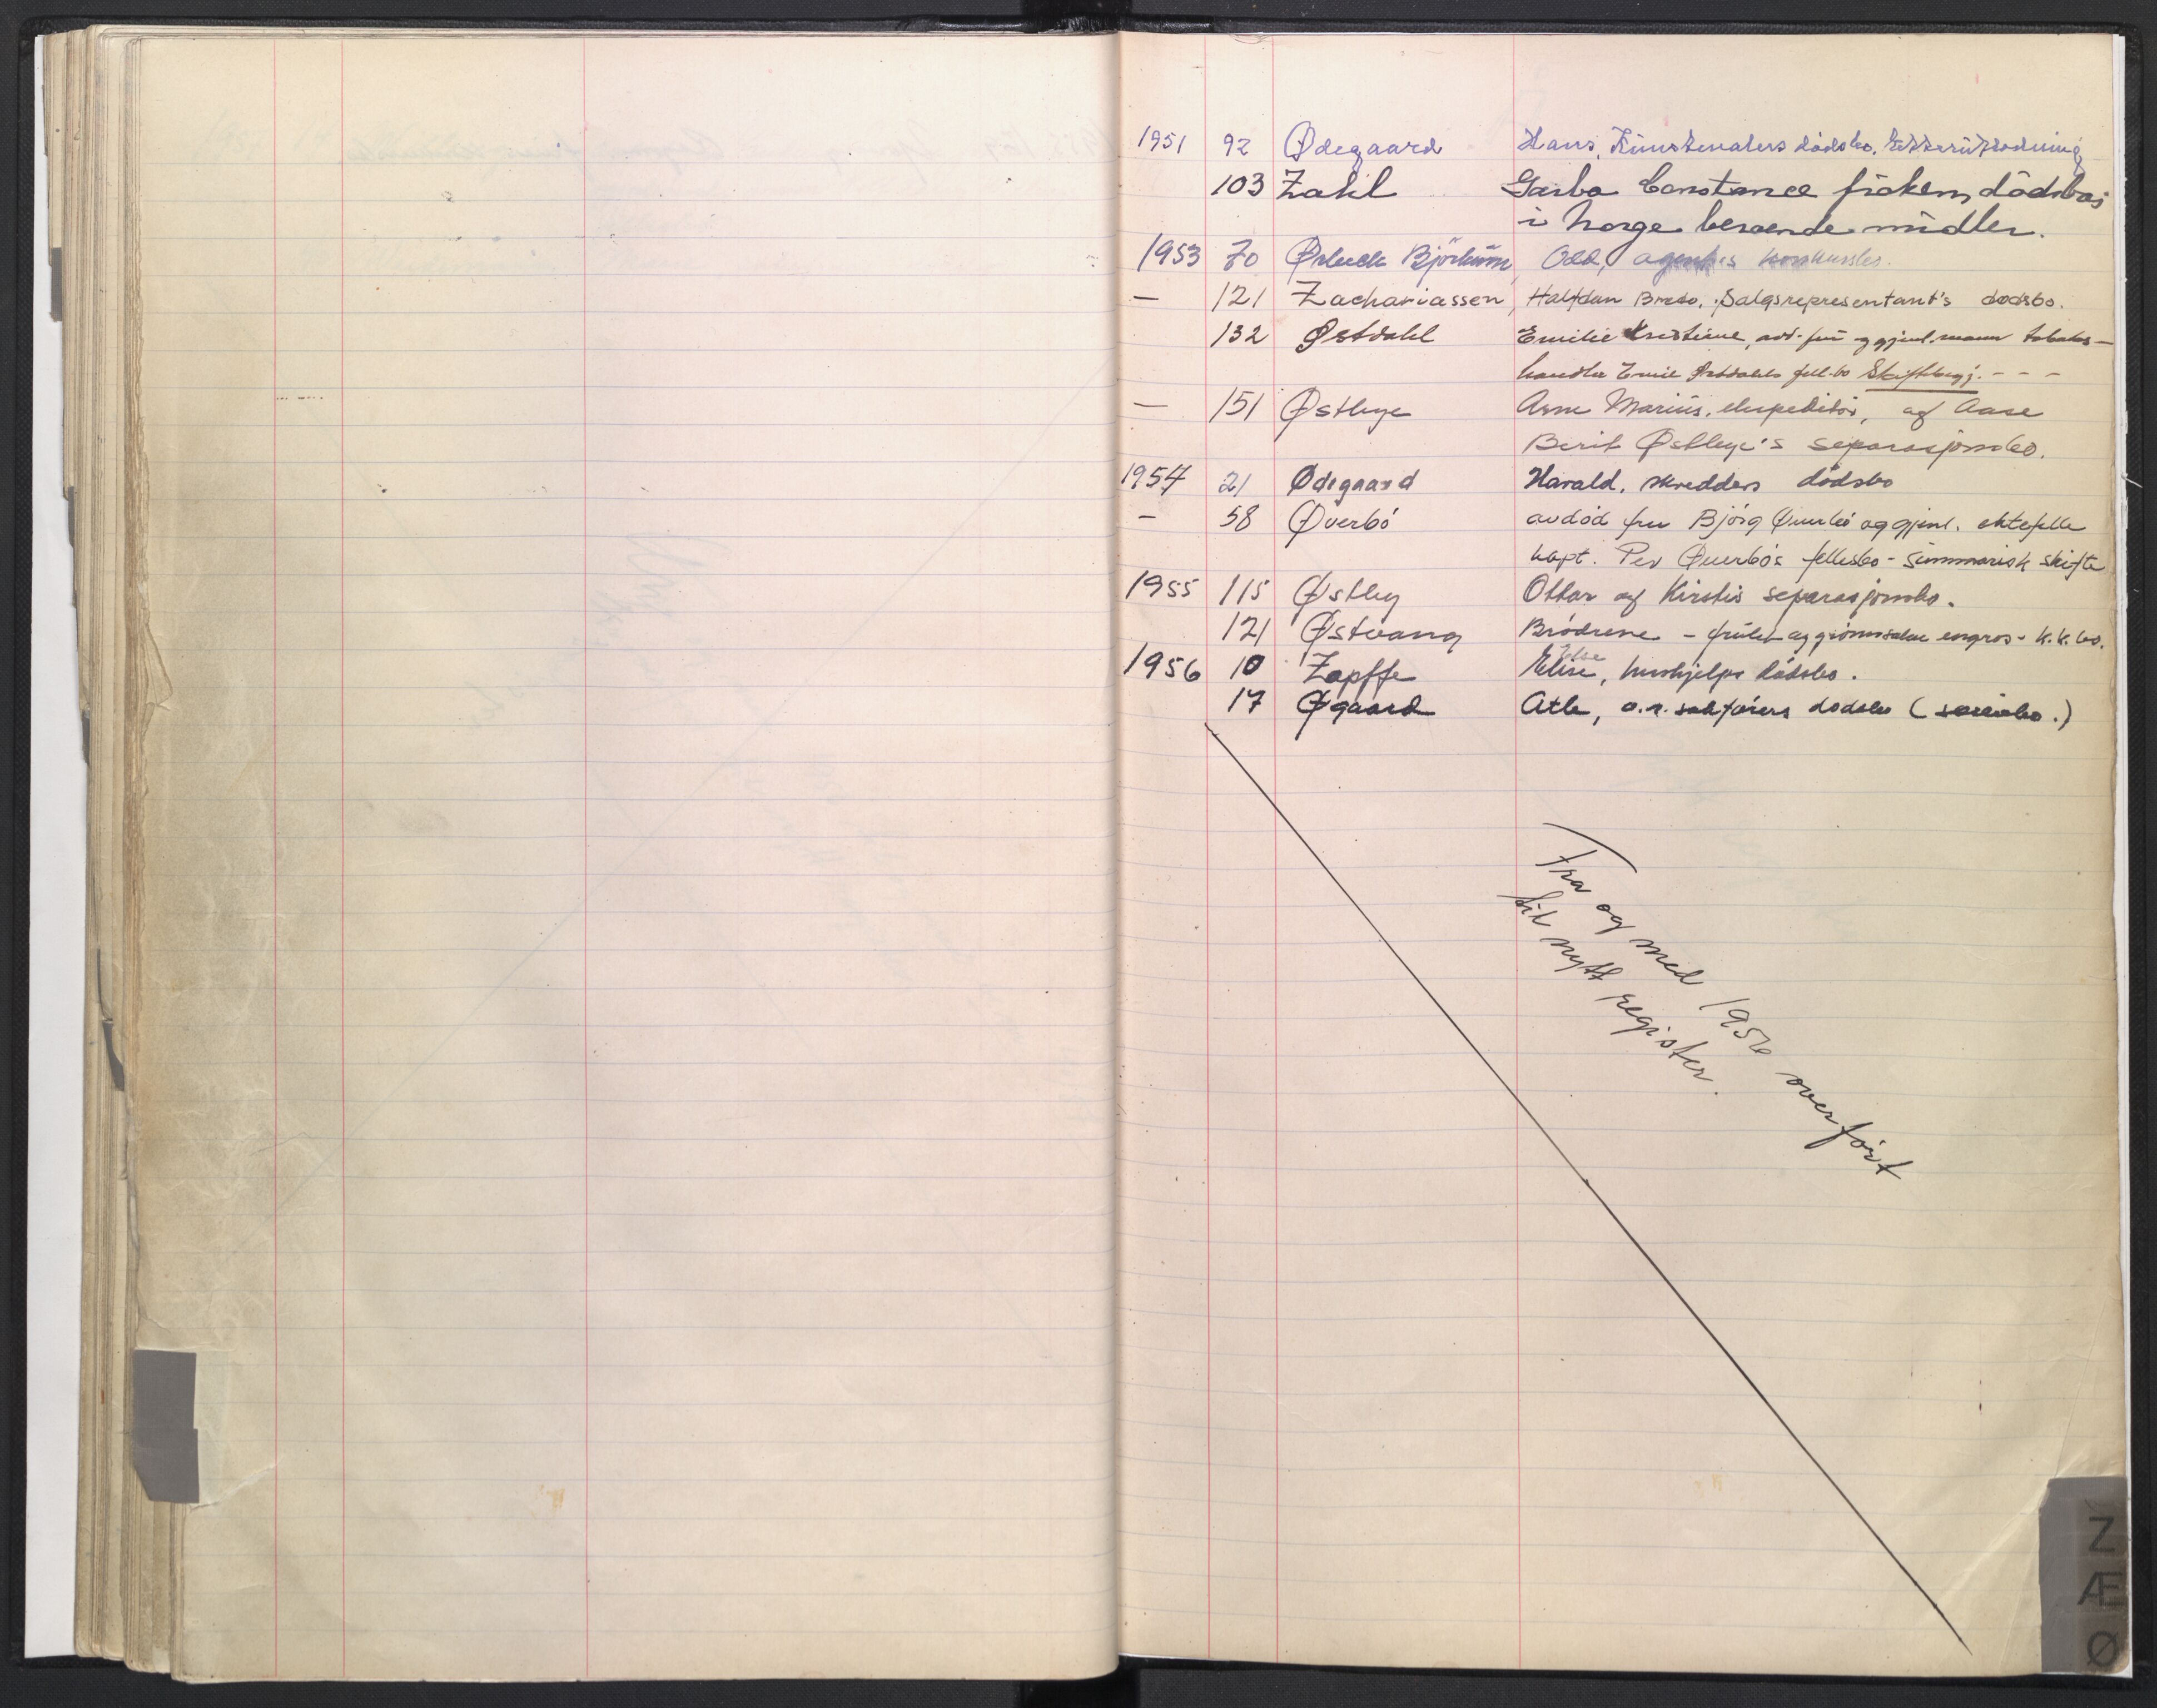 1951 92 Ødegaard Hans, Kunstmalers dödsbo. Etterutlodning
103 Zahl Garba Constance fröken, dödsbos
i Norge beroende midler.
1953 70 Ørbeck Björkum, Odd, agents konkursbo.
— 121 Zachariassen, Halfdan Bredo, Salgsrepresentant's dødsbo.
132 Østdahl Emilie Kristiane, avd. fru og gjenl. mann tobaks-
handler Emil Østdahls fell.bo Skiftbegj. - - -
— 151 Østbye Arne Marius, ekspeditør, og Aase
Berit Østbye's separasjonsbo.
1954 21 Ødegaard Harald, skredders dödsbo
— 58 Øverbö avdöd fru Björg Øverbö og gjenl. ektefelle
kapt. Per Øverbö's fellesbo - Summarisk skifte
1955 115 Østby Ottar og Kirstis separasjonsbo.
121 Østvang Brödrene - frukt og grönnsaker engros - k.k. bo.
1956 10 Zapffe Elise, Else hushjelps dödsbo.
17 Øgaard Atle, o.r. sakförers dödsbo
Fra og med 1956 overfört
til nytt register.
Z
Æ
Ø